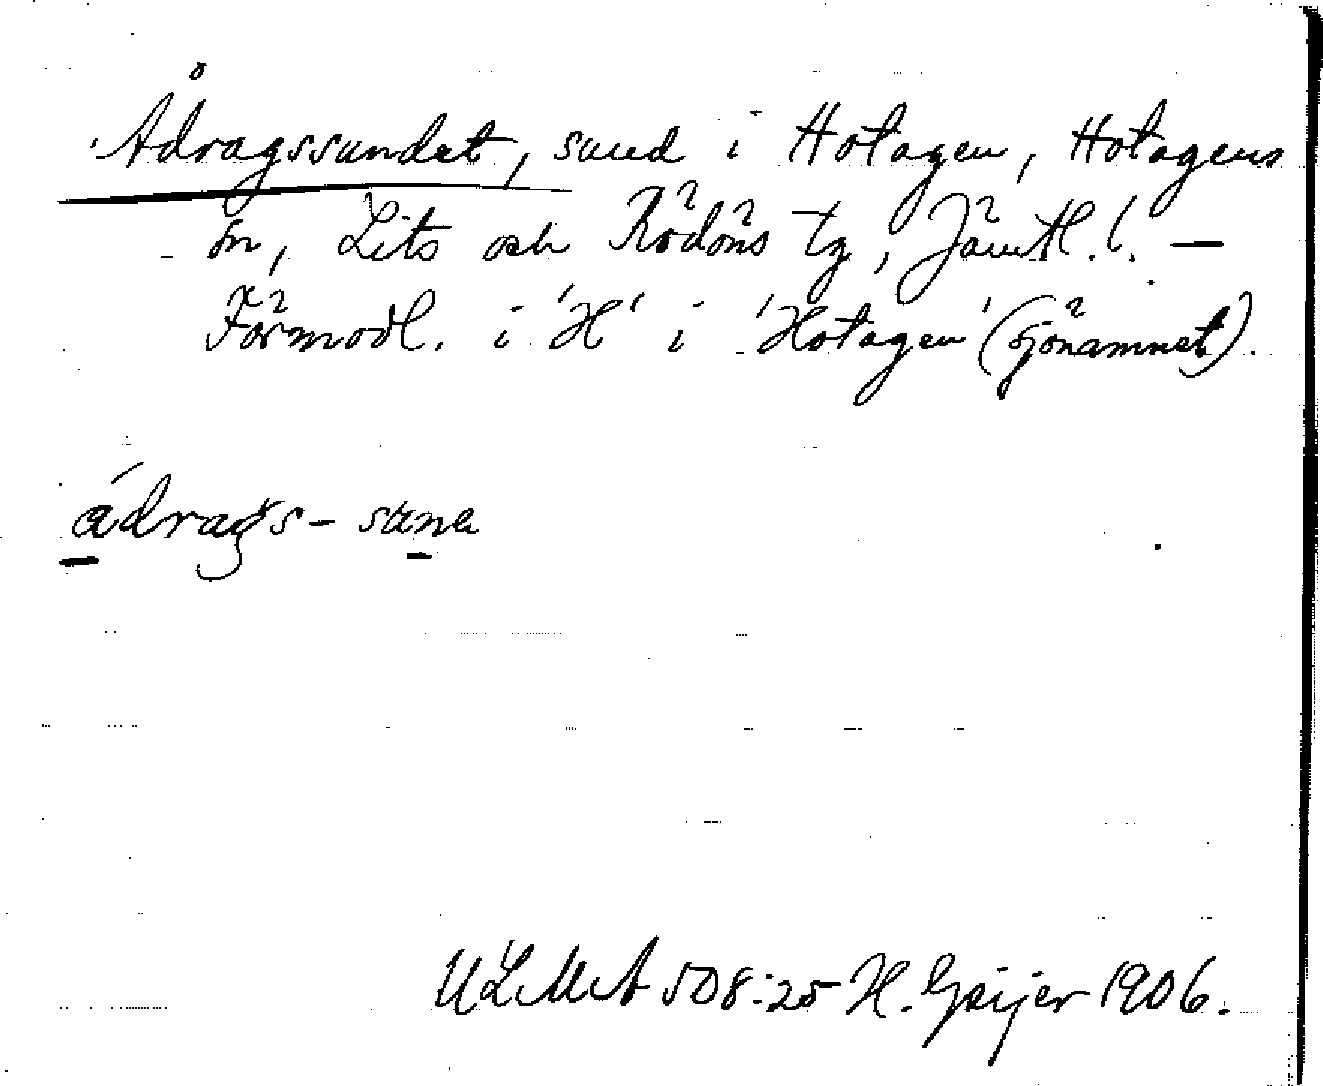 Ådragssundet, sund i Hotagen, Hotagens
sn, Lits och Rödöns tg, Jämtl. l. —
Förmodl. i 'H' i 'Hotagen' (sjönamnet).
ádrags-suna
ULMA 508:25 H. Geijer 1906.